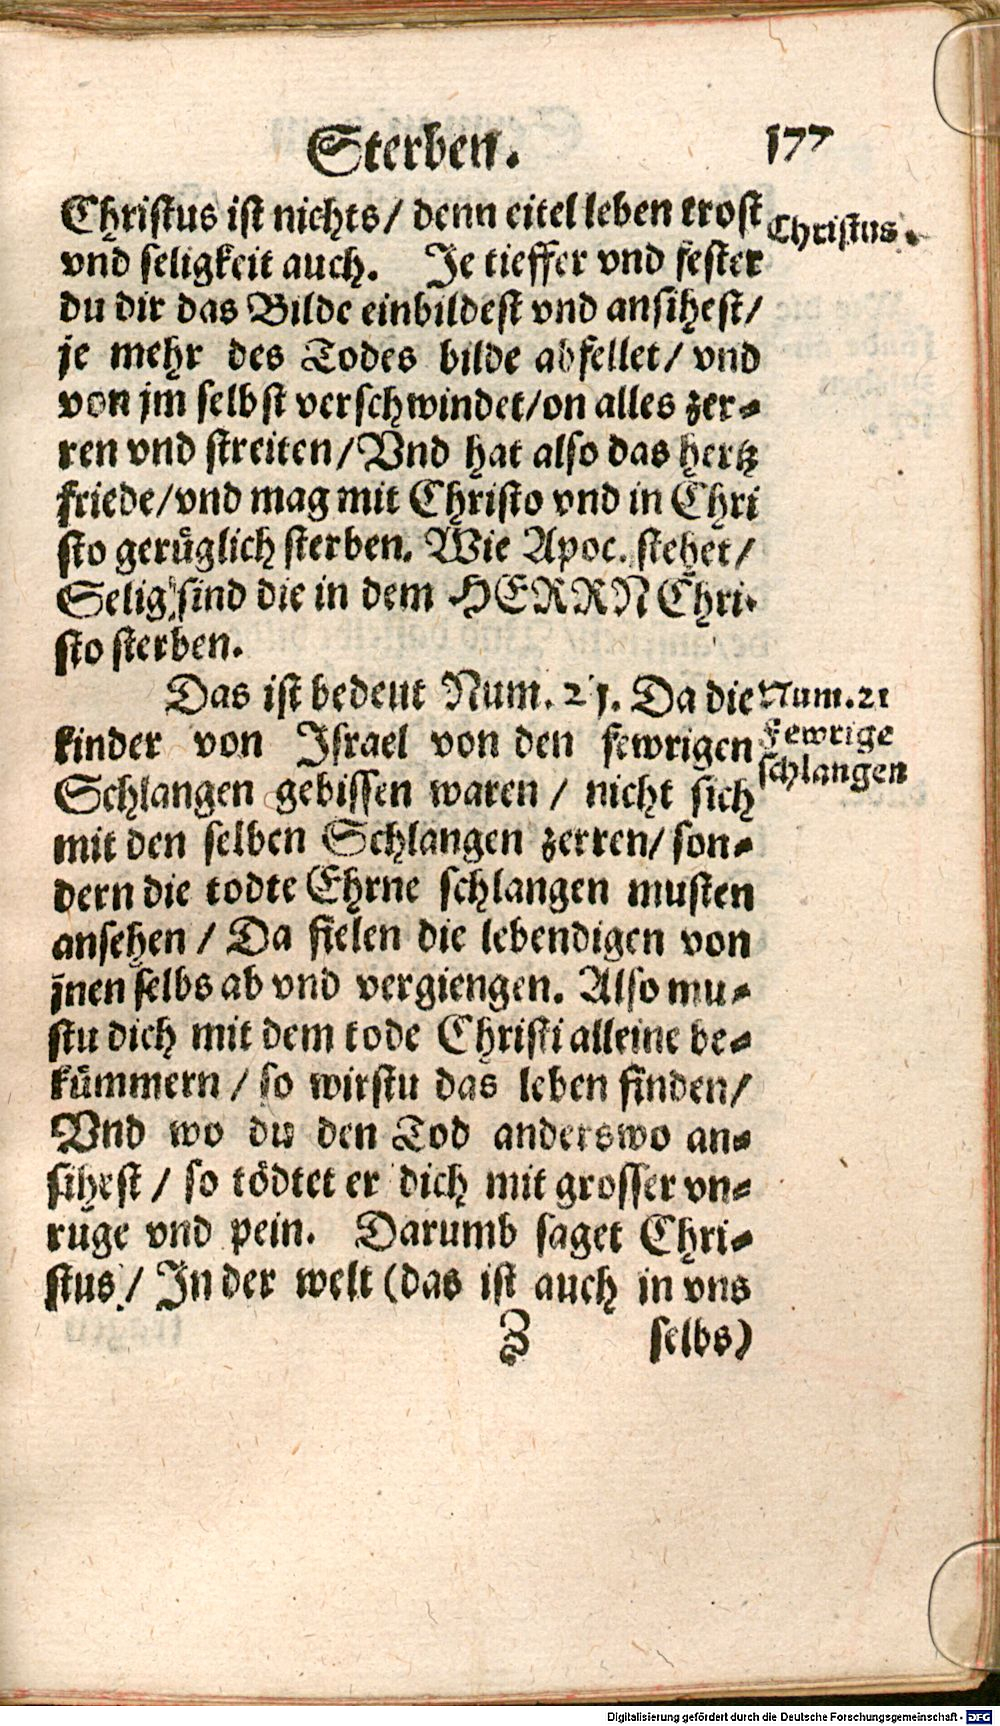 Sterben. 177
Christus ist nichts/ denn eitel leben trost
vnd seligkeit auch. Je tieffer vnd fester
du dir das Bilde einbildest vnd ansihest/
je mehr des Todes bilde abfellet/ vnd
von jm selbst verschwindet/on alles zer-
ren vnd streiten/ Vnd hat also das hertz
friede/vnd mag mit Christo vnd in Chri
sto gerüglich sterben. Wie Apoc. stehet/
Selig sind die in dem HERRN Chri-
sto sterben.
Christus.
Das ist bedeut Num. 21. Da die
kinder von Israel von den fewrigen
Schlangen gebissen waren / nicht sich
mit den selben Schlangen zerren/ son-
dern die todte Ehrne schlangen musten
ansehen / Da fielen die lebendigen von
jnen selbs ab vnd vergiengen. Also mu-
stu dich mit dem tode Christi alleine be-
kümmern / so wirstu das leben finden/
Vnd wo du den Tod anderswo an-
sihest / so tödtet er dich mit grosser vn-
ruge vnd pein. Darumb saget Chri-
stus/ In der welt (das ist auch in vns
Num. 21
Fewrige
schlangen
Z selbs)
Digitalisierung gefördert durch die Deutsche Forschungsgemeinschaft - DFG